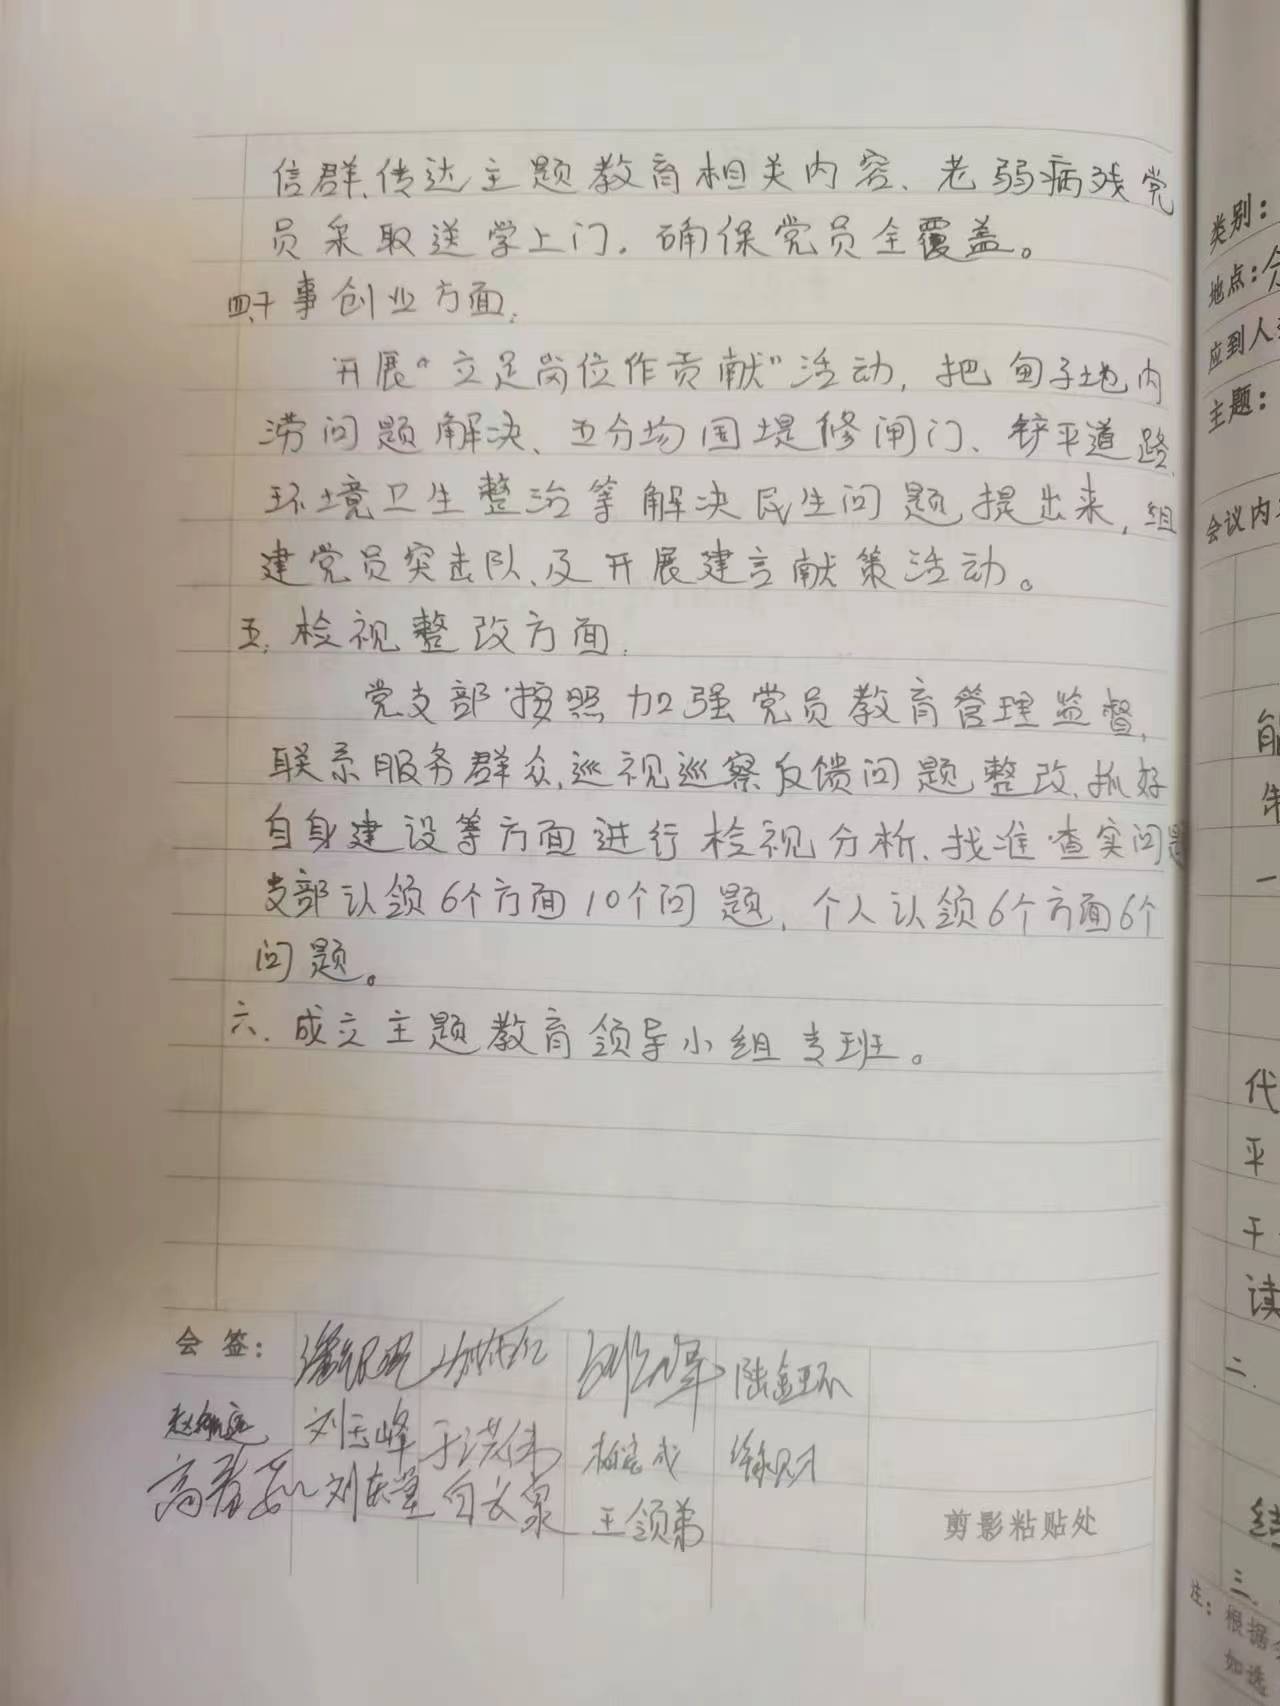 信群、传达主题教育相关内容、老弱病残党
员采取送学上门。确保党员全覆盖。
四、干事创业方面:
开展“立足岗位作贡献”活动,把甸子地内
涝问题解决、五分场围堤修闸门、铲平道路、
环境卫生整治等解决民生问题提出来,组
建党员突击队、及开展建言献策活动。
五、检视整改方面:
党支部按照加强党员教育管理监督,
联系服务群众、巡视巡察反馈问题整改、抓好
自身建设等方面进行检视分析、找准查实问题
支部认领6个方面10个问题,个人认领6个方面6个
问题。
六、成立主题教育领导小组专班。
会签:
陆金环
刘玉峰 于洪伟
刘庆堂 白云泉 王领弟
剪影粘贴处
类别:
地点:
应到人
主题:
会议内
一
代
平
干
读
二、
三、
注:根据
如选